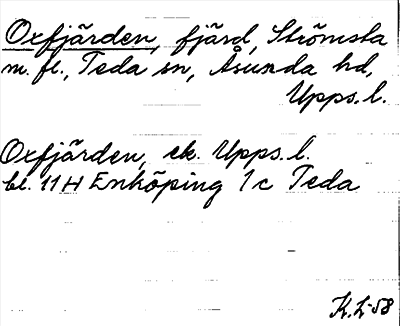 Oxfjärden, fjärd, Strömsta
m. fl., Teda sn, Åsunda hd,
Upps. l.
Oxfjärden, ek. Upps. l.
bl. 11 H Enköping 1 c Teda
K.L-58